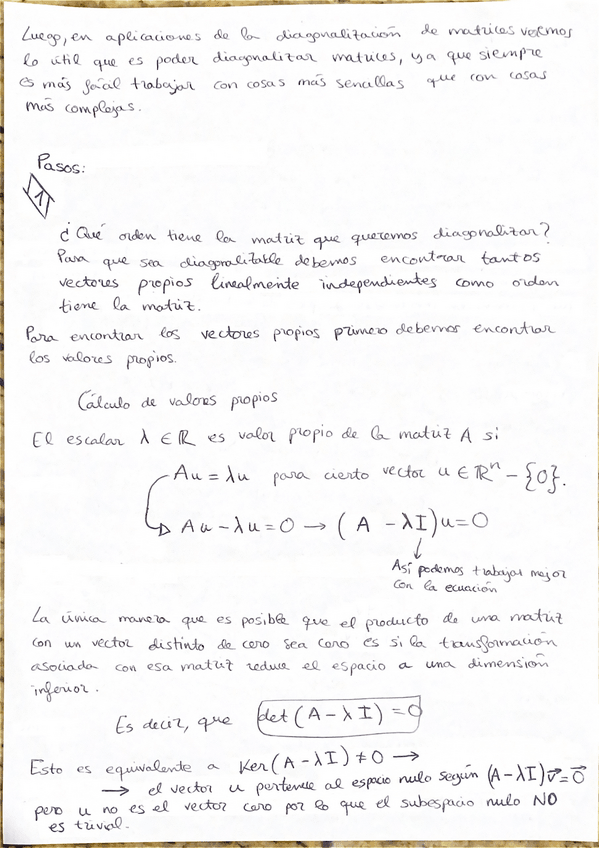 Luego, en aplicaciones de la diagonalización de matrices vermos
lo útil que es poder diagonalizar matrices, ya que siempre
es más fácil trabajar con cosas más sencillas que con cosas
más complejas.
Pasos:
1
¿Qué orden tiene la matriz que queremos diagonalizar?
Para que sea diagonalizable debemos encontrar tantos
vectores propios linealmente independientes como orden
tiene la matriz.
Para encontrar los vectores propios primero debemos encontrar
los valores propios.
Cálculo de valores propios
El escalar λ ∈ ℝ es valor propio de la matriz A si
Au = λu para cierto vector u ∈ ℝⁿ - {0}.
Au - λu = 0 → (A - λI)u = 0
↓
Así podemos trabajar mejor
con la ecuación
La única manera que es posible que el producto de una matriz
con un vector distinto de cero sea cero es si la transformación
asociada con esa matriz reduce el espacio a una dimensión
inferior.
Es decir, que det(A - λI) = 0
Esto es equivalente a Ker(A - λI) ≠ 0 →
→ el vector u pertenece al espacio nulo según (A - λI)v⃗ = 0⃗
pero u no es el vector cero por lo que el subespacio nulo NO
es trivial.